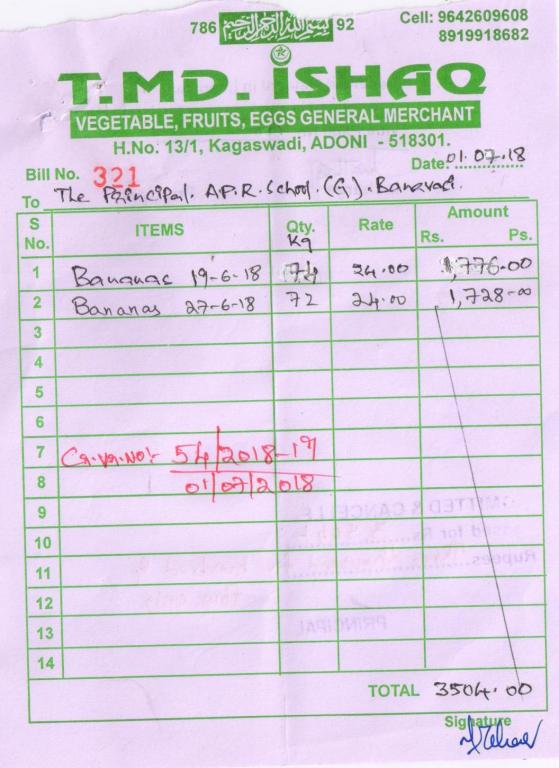 786 بسم الله الرحمن الرحيم 92
Cell: 9642609608
8919918682
T.MD. ISHAQ
VEGETABLE, FRUITS, EGGS GENERAL MERCHANT
H.No: 13/1, Kagaswadi, ADONI - 518301.
Bill No. 321 Date: 01.07.18
To The Principal. A.P.R. School. (G). Banavasi.
S No. ITEMS Qty. Kg Rate Amount Rs. Ps.
1 Bananas 19-6-18 74 24.00 1,776-00
2 Bananas 27-6-18 72 24.00 1,728-00
3
4
5
6
7 Ca.Vr.No:- 54/2018-19
8 01/07/2018
9
10
11
12
13
14
TOTAL 3504.00
Signature